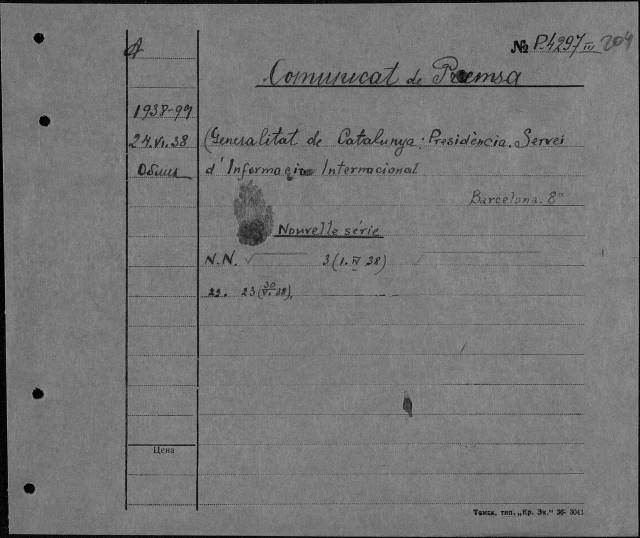 № P.4297 III 204
Comunicat de Premsa
1938-99
24.VI.38 (Generalitat de Catalunya: Presidència. Servei
d'Informació Internacional
Barcelona. 8º
Nouvelle série
N.N. 3 (1. IV 38)
22. 23 (30/VI. 38),
Цена
Томск, тип. „Кр. Зн." 36- 3041